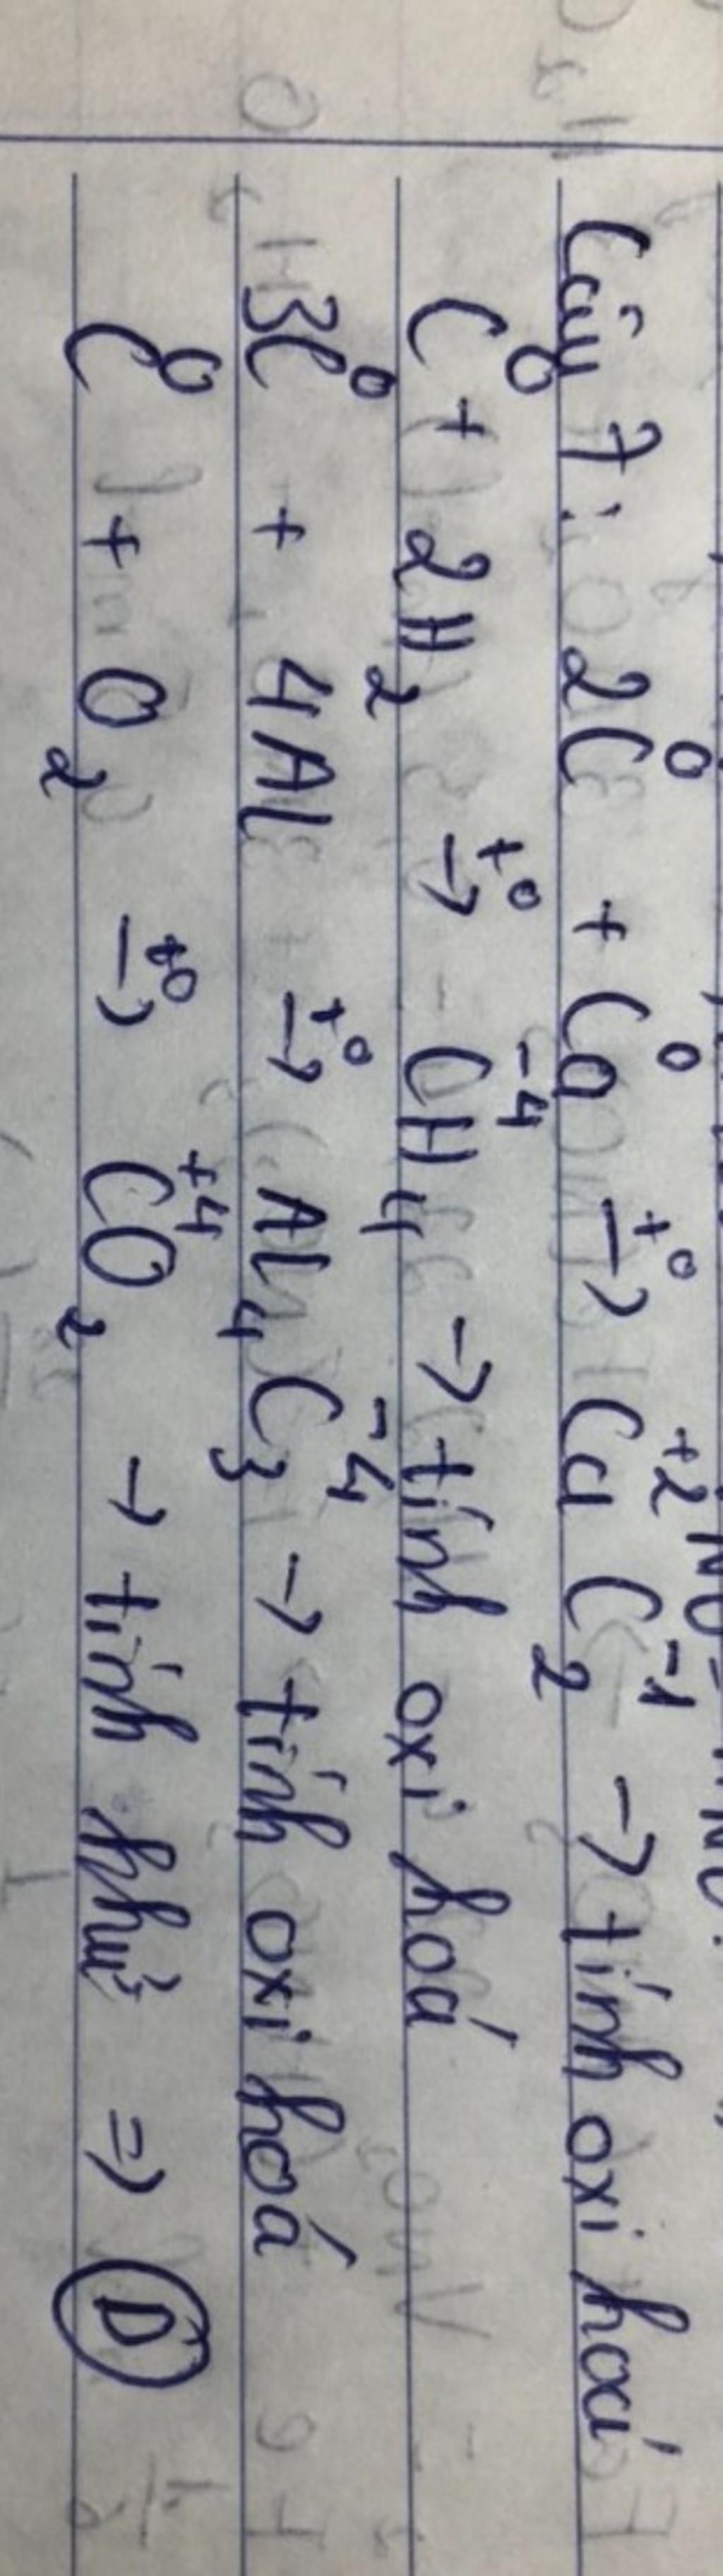 Câu 7: 2C⁰ + Ca⁰ →(t⁰) Ca⁺²C₂⁻¹ → tính oxi hoá
C⁰ + 2H₂ →(t⁰) C⁻⁴H₄ → tính oxi hoá
3C⁰ + 4Al →(t⁰) Al₄C₃⁻⁴ → tính oxi hoá
C⁰ + O₂ →(t⁰) C⁺⁴O₂ → tính khử => D